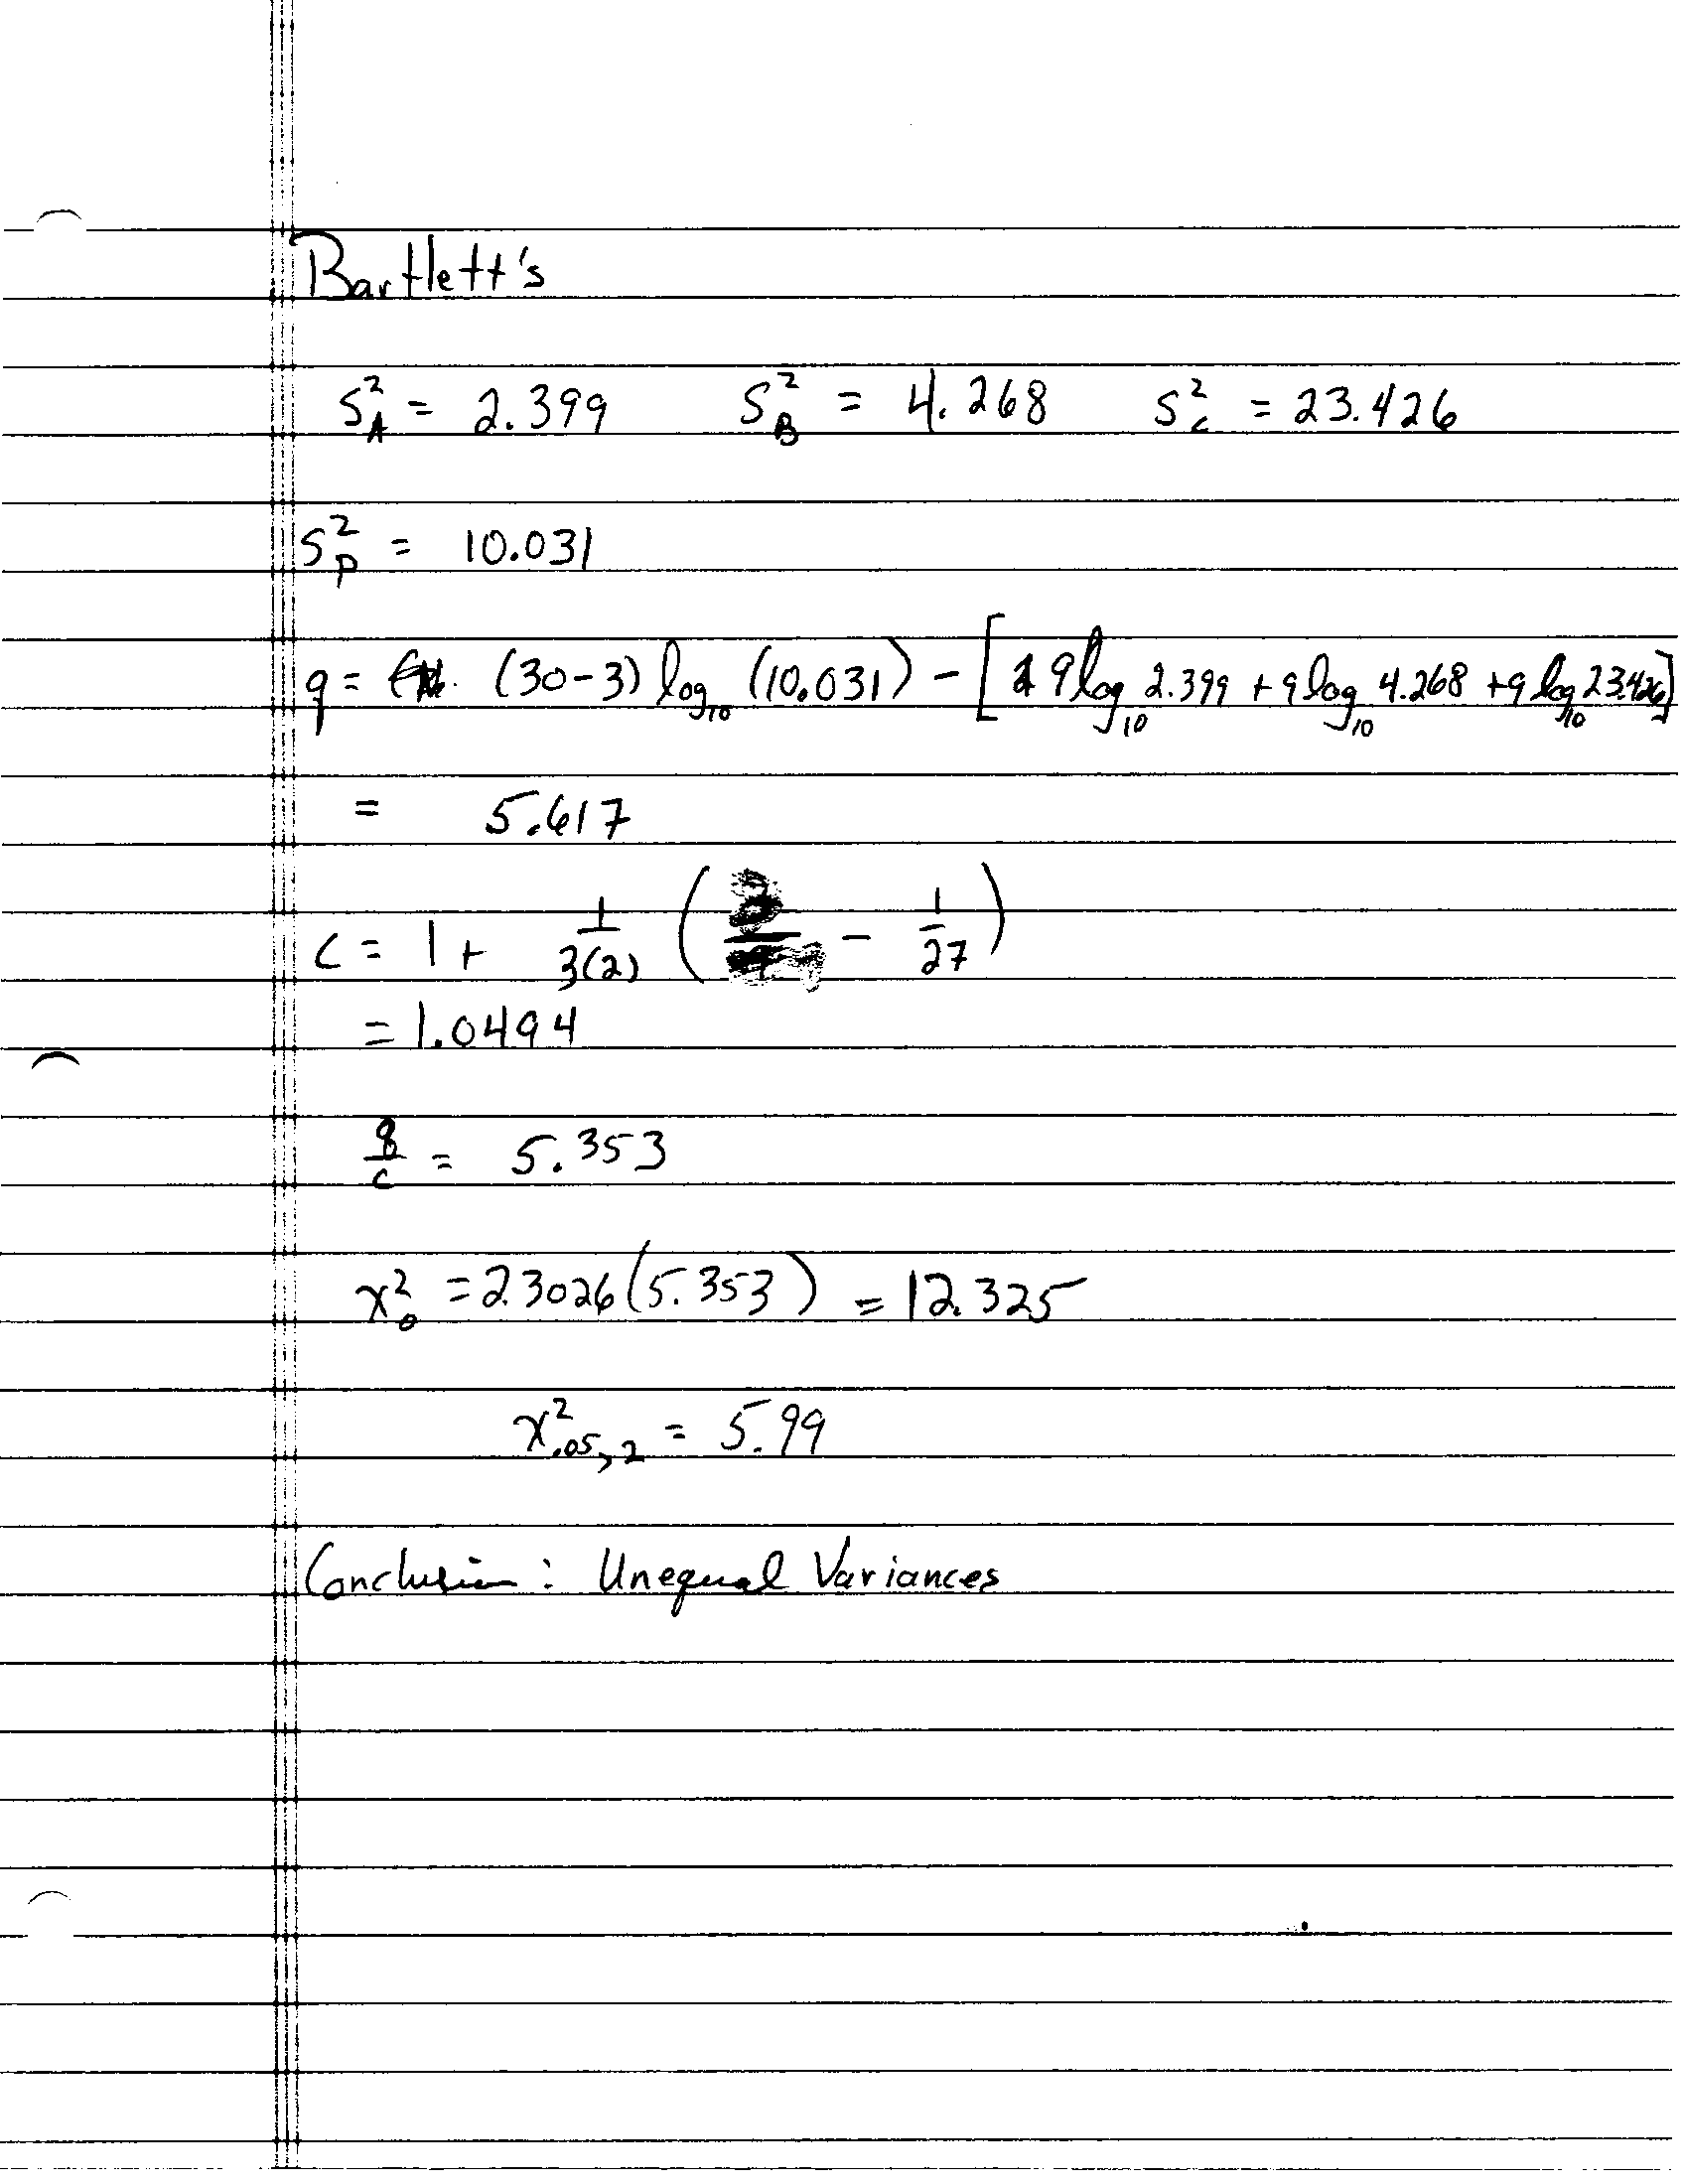 Bartlett's
S²_A = 2.399 S²_B = 4.268 S²_C = 23.426
S²_p = 10.031
q = (30-3) log₁₀ (10.031) - [ 9 log₁₀ 2.399 + 9 log₁₀ 4.268 + 9 log₁₀ 23.426]
= 5.617
c = 1 + 1/3(2) ( - 1/27 )
= 1.0494
q/c = 5.353
χ²₀ = 2.3026 (5.353) = 12.325
χ²_.05,2 = 5.99
Conclusion : Unequal Variances